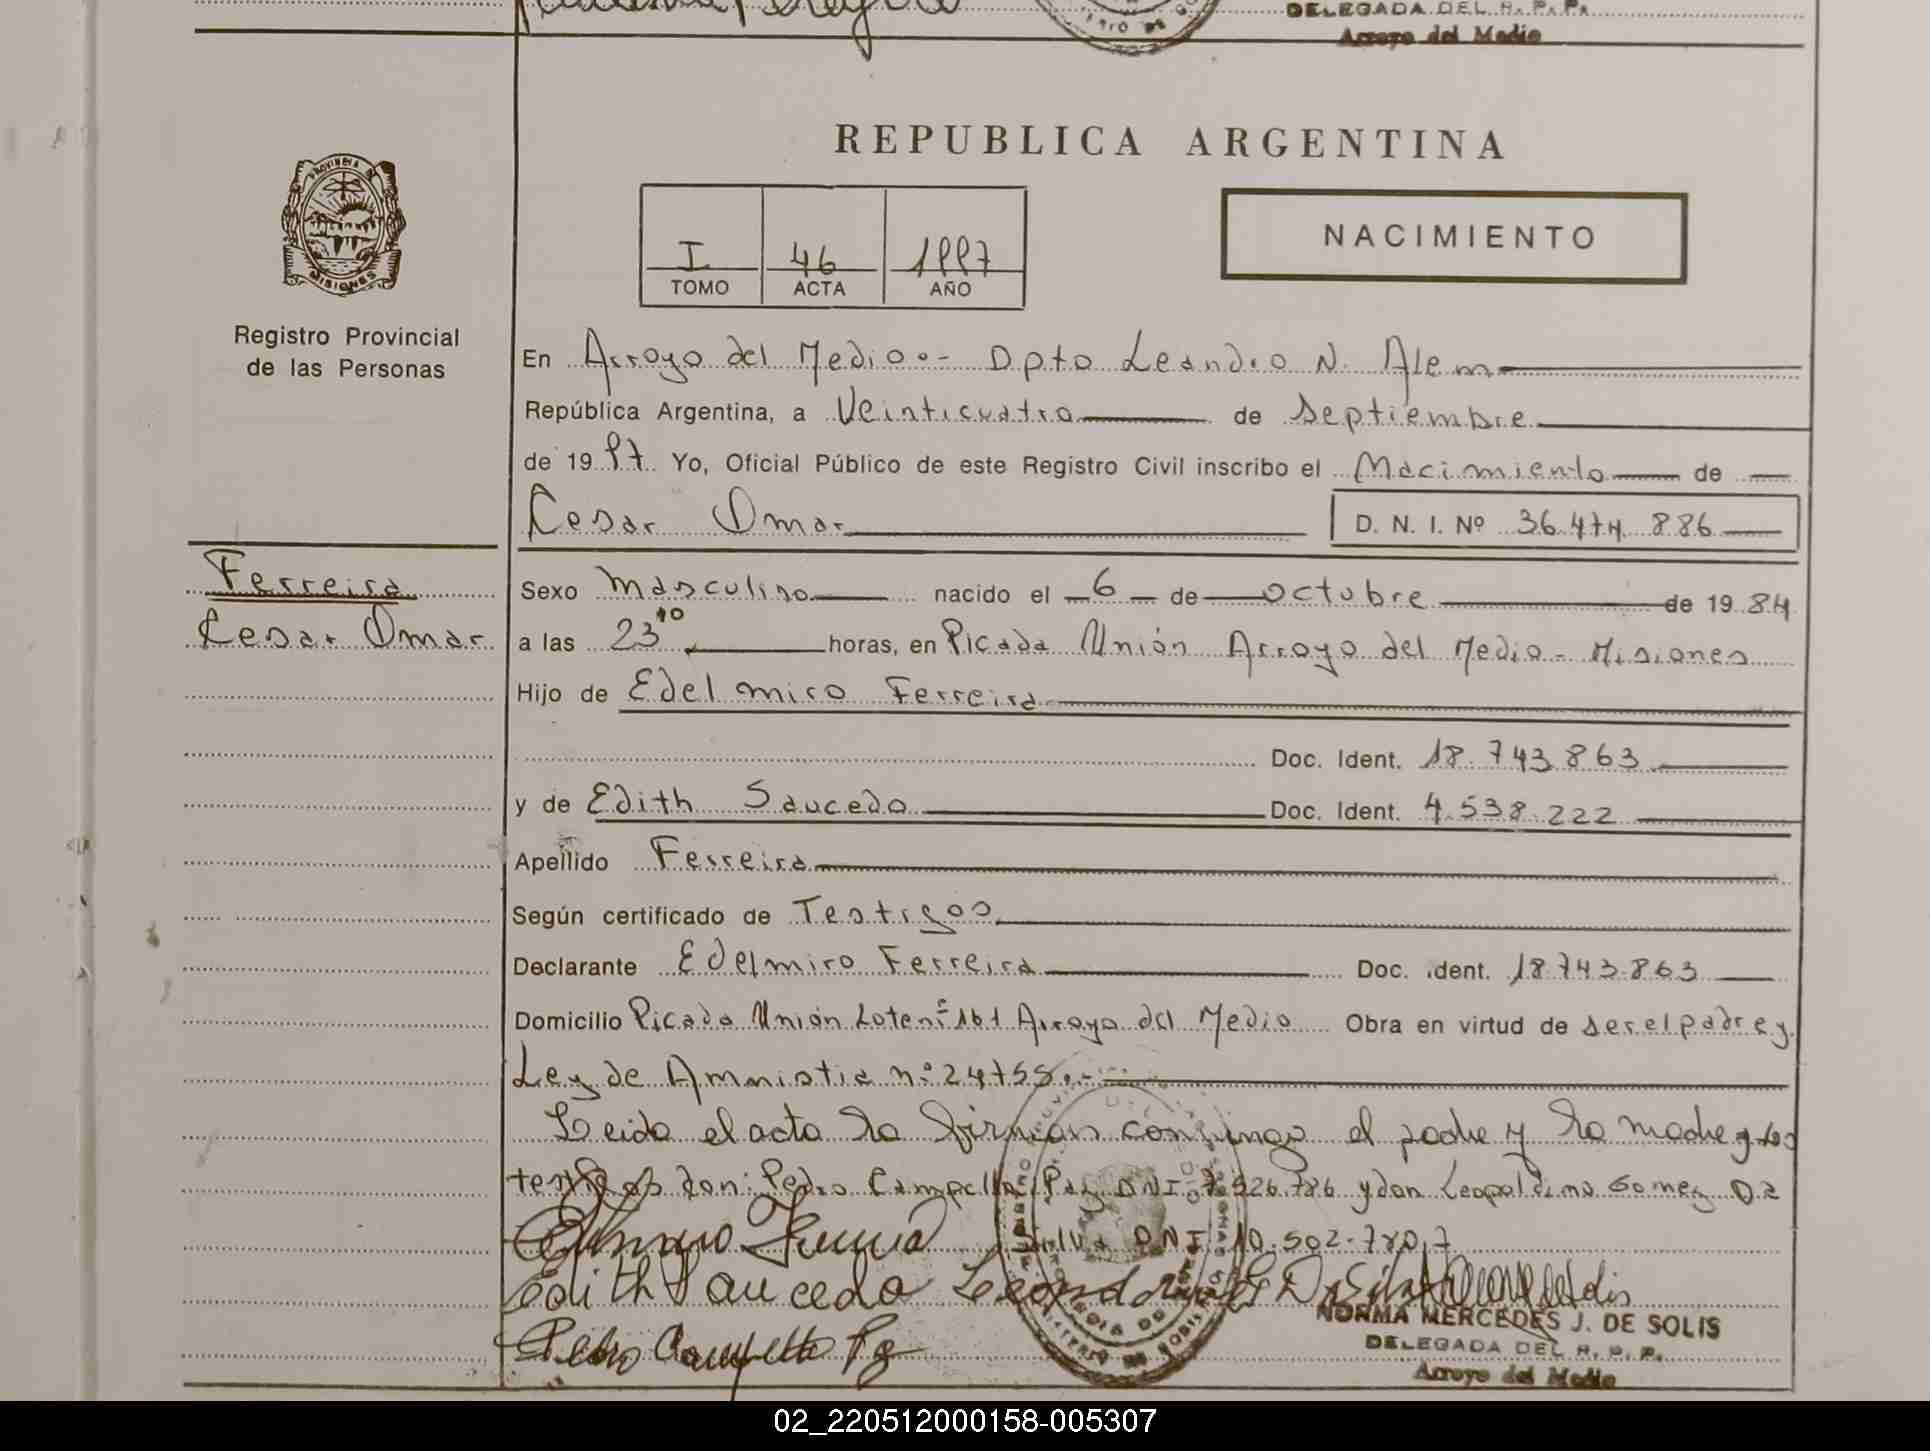 DELEGADA DEL R. P. P.
Arroyo del Medio
REPUBLICA ARGENTINA
PROVINCIA DE
MISIONES
I 46 1997
TOMO ACTA AÑO
NACIMIENTO
Registro Provincial
de las Personas
En Arroyo del Medio.- Dpto Leandro N. Alem
República Argentina, a Veinticuatro de Septiembre
de 1997 Yo, Oficial Público de este Registro Civil inscribo el Nacimiento de
Cesar Omar D. N. I. Nº 36.474.886
Ferreira
Cesar Omar
Sexo Masculino nacido el 6 de octubre de 1984
a las 23 10 horas, en Picada Unión Arroyo del Medio - Misiones
Hijo de Edelmiro Ferreira
Doc. Ident. 18.743.863
y de Edith Saucedo Doc. Ident. 4.538.222
Apellido Ferreira
Según certificado de Testigos
Declarante Edelmiro Ferreira Doc. ident. 18.743.863
Domicilio Picada Unión Lote nº 161 Arroyo del Medio Obra en virtud de ser el padre y
Ley de Amnistia nº 24755.-
Leida el acta la firman conmigo el padre y la madre y los
testigos don: Pedro Campello Paz DNI 7.526.786 y don Leopoldino Gomez Da
Silva DNI 10.502.780
Edith Saucedo
NORMA MERCEDES J. DE SOLIS
DELEGADA DEL R. P. P.
Arroyo del Medio
02_220512000158-005307